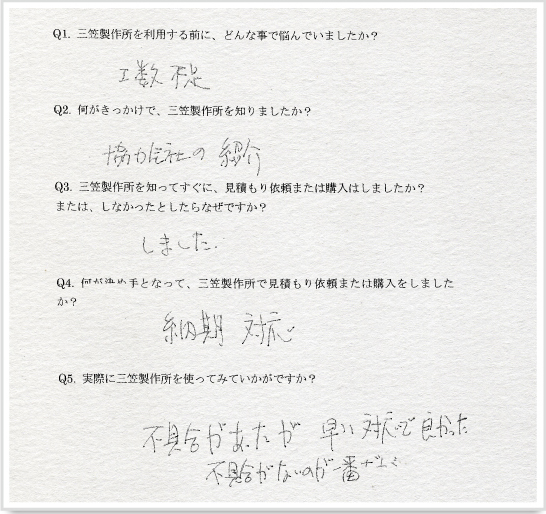 Q1. 三笠製作所を利用する前に、どんな事で悩んでいましたか？
工数不足
Q2. 何がきっかけで、三笠製作所を知りましたか？
協力会社の紹介
Q3. 三笠製作所を知ってすぐに、見積もり依頼または購入はしましたか？
または、しなかったとしたらなぜですか？
しました.
Q4. 何が決め手となって、三笠製作所で見積もり依頼または購入をしました
か？
納期対応
Q5. 実際に三笠製作所を使ってみていかがですか？
不具合があったが 早い対応で良かった
不具合がないのが一番